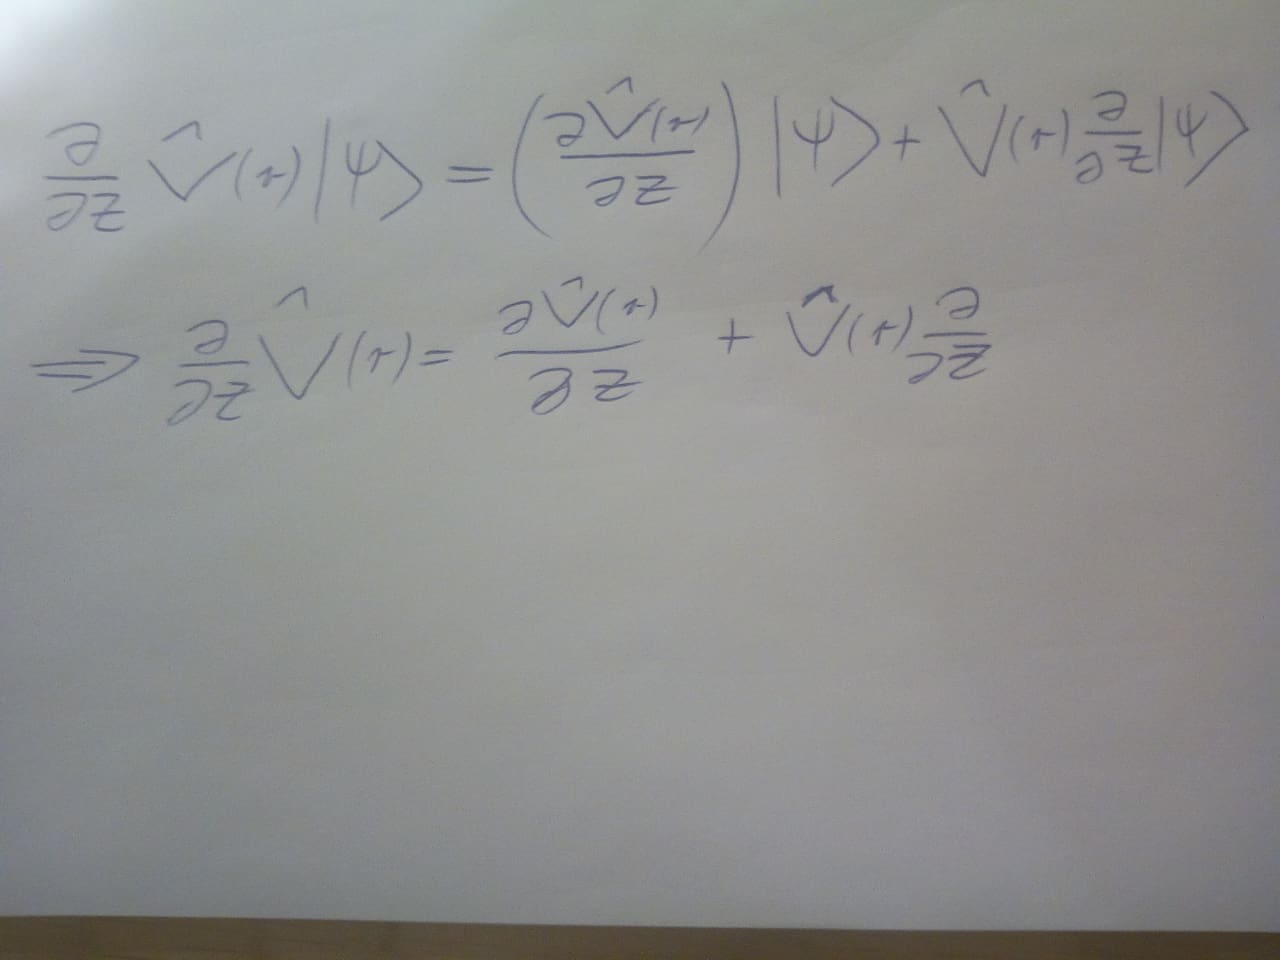 ∂/∂z V̂(r)|ψ⟩ = (∂V̂(r)/∂z)|ψ⟩ + V̂(r) ∂/∂z|ψ⟩
⟹ ∂/∂z V̂(r) = ∂V̂(r)/∂z + V̂(r) ∂/∂z